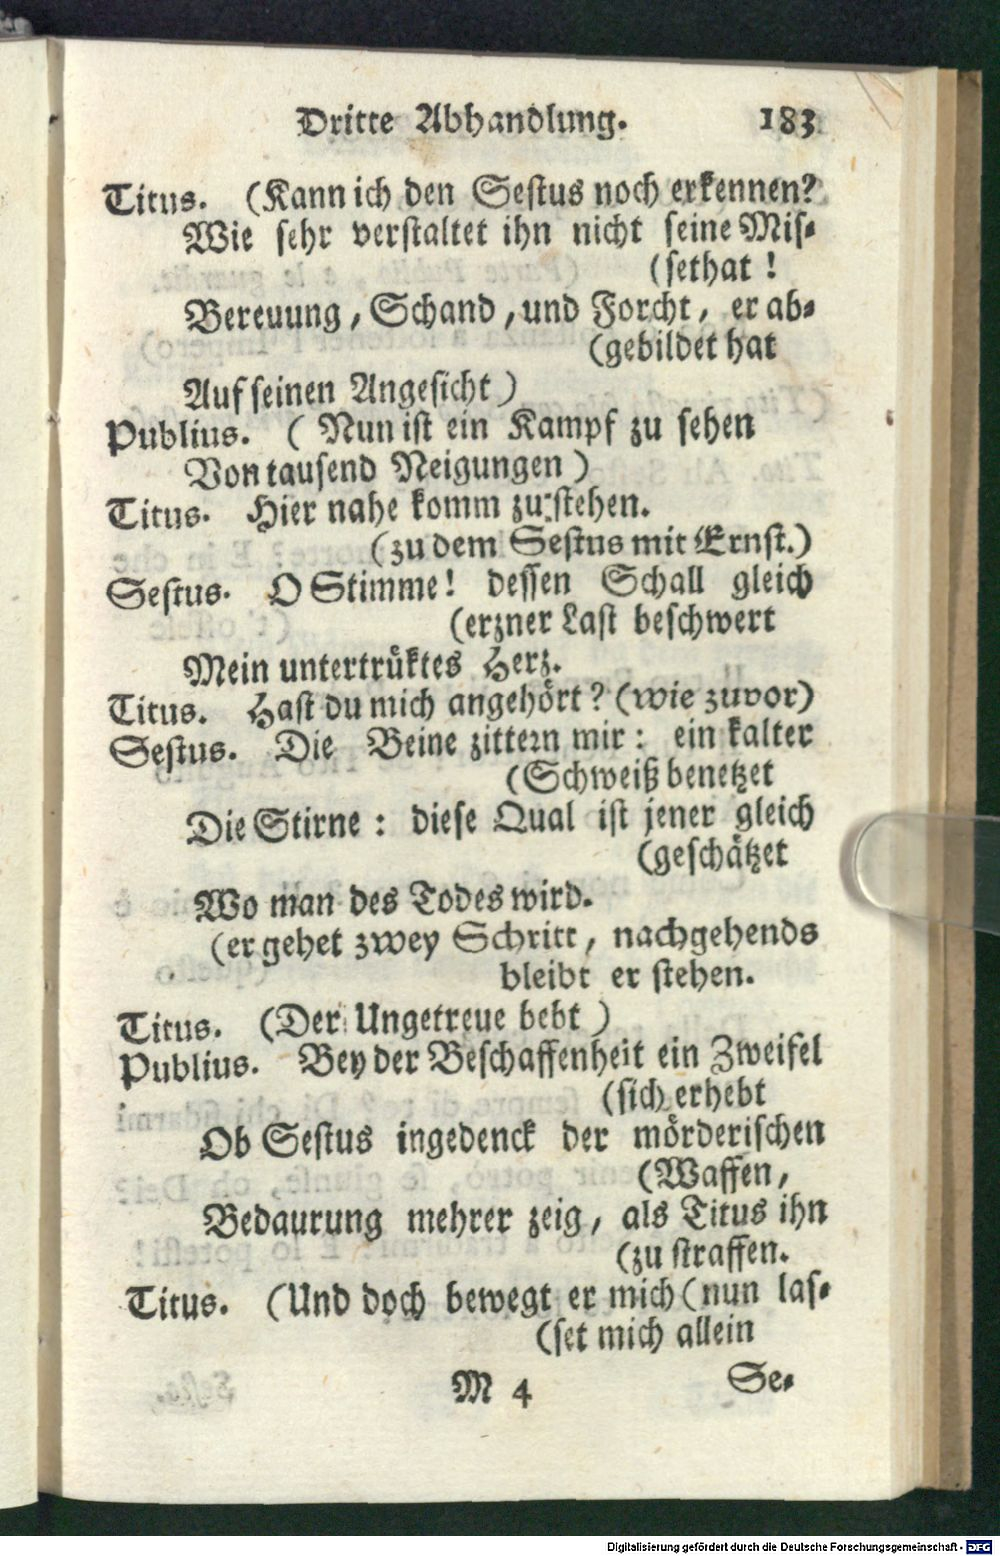 Dritte Abhandlung. 183
Titus. (Kann ich den Sestus noch erkennen?
Wie sehr verstaltet ihn nicht seine Mis-
(sethat!
Bereuung, Schand, und Forcht, er ab-
(gebildet hat
Auf seinen Angesicht)
Publius. (Nun ist ein Kampf zu sehen
Von tausend Neigungen)
Titus. Hier nahe komm zu stehen.
(zu dem Sestus mit Ernst.)
Sestus. O Stimme! dessen Schall gleich
(erzner Last beschwert
Mein untertrüktes Herz.
Titus. Hast du mich angehört? (wie zuvor)
Sestus. Die Beine zittern mir: ein kalter
(Schweiß benetzet
Die Stirne: diese Qual ist jener gleich
(geschätzet
Wo man des Todes wird.
(er gehet zwey Schritt, nachgehends
bleibt er stehen.
Titus. (Der Ungetreue bebt)
Publius. Bey der Beschaffenheit ein Zweifel
(sich erhebt
Ob Sestus ingedenck der mörderischen
(Waffen,
Bedaurung mehrer zeig, als Titus ihn
(zu straffen.
Titus. (Und doch bewegt er mich (nun las-
(set mich allein
M 4 Se-
Digitalisierung gefördert durch die Deutsche Forschungsgemeinschaft - DFG